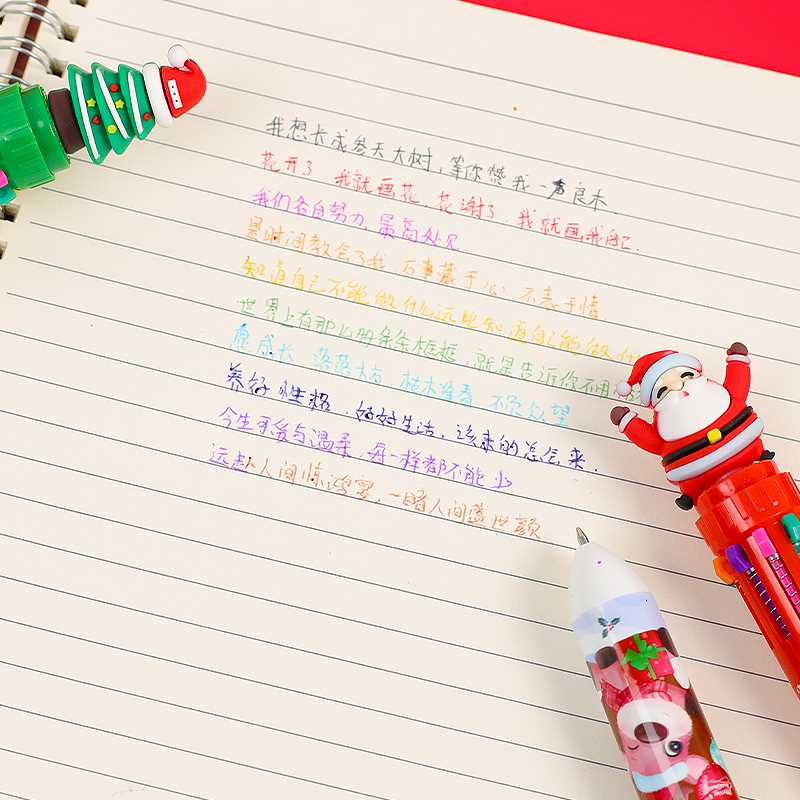 我想长成参天大树，等你赞我一声良木．
花开了 我就画花．花谢了．我就画我自己．
我们各自努力 最高处见
是时间教会了我 万事藏于心．不表于情．
知道自己不能做什么远比知道自己能做什
世界上有那么册条条框框．就是告诉你不用
愿成长 落落大方 枯木逢春 不负众望
养好性格．好好生活．该来的总会来．
今生手爱与温柔．每一样都不能少
远赴人间惊鸿宴．一睹人间盛世颜